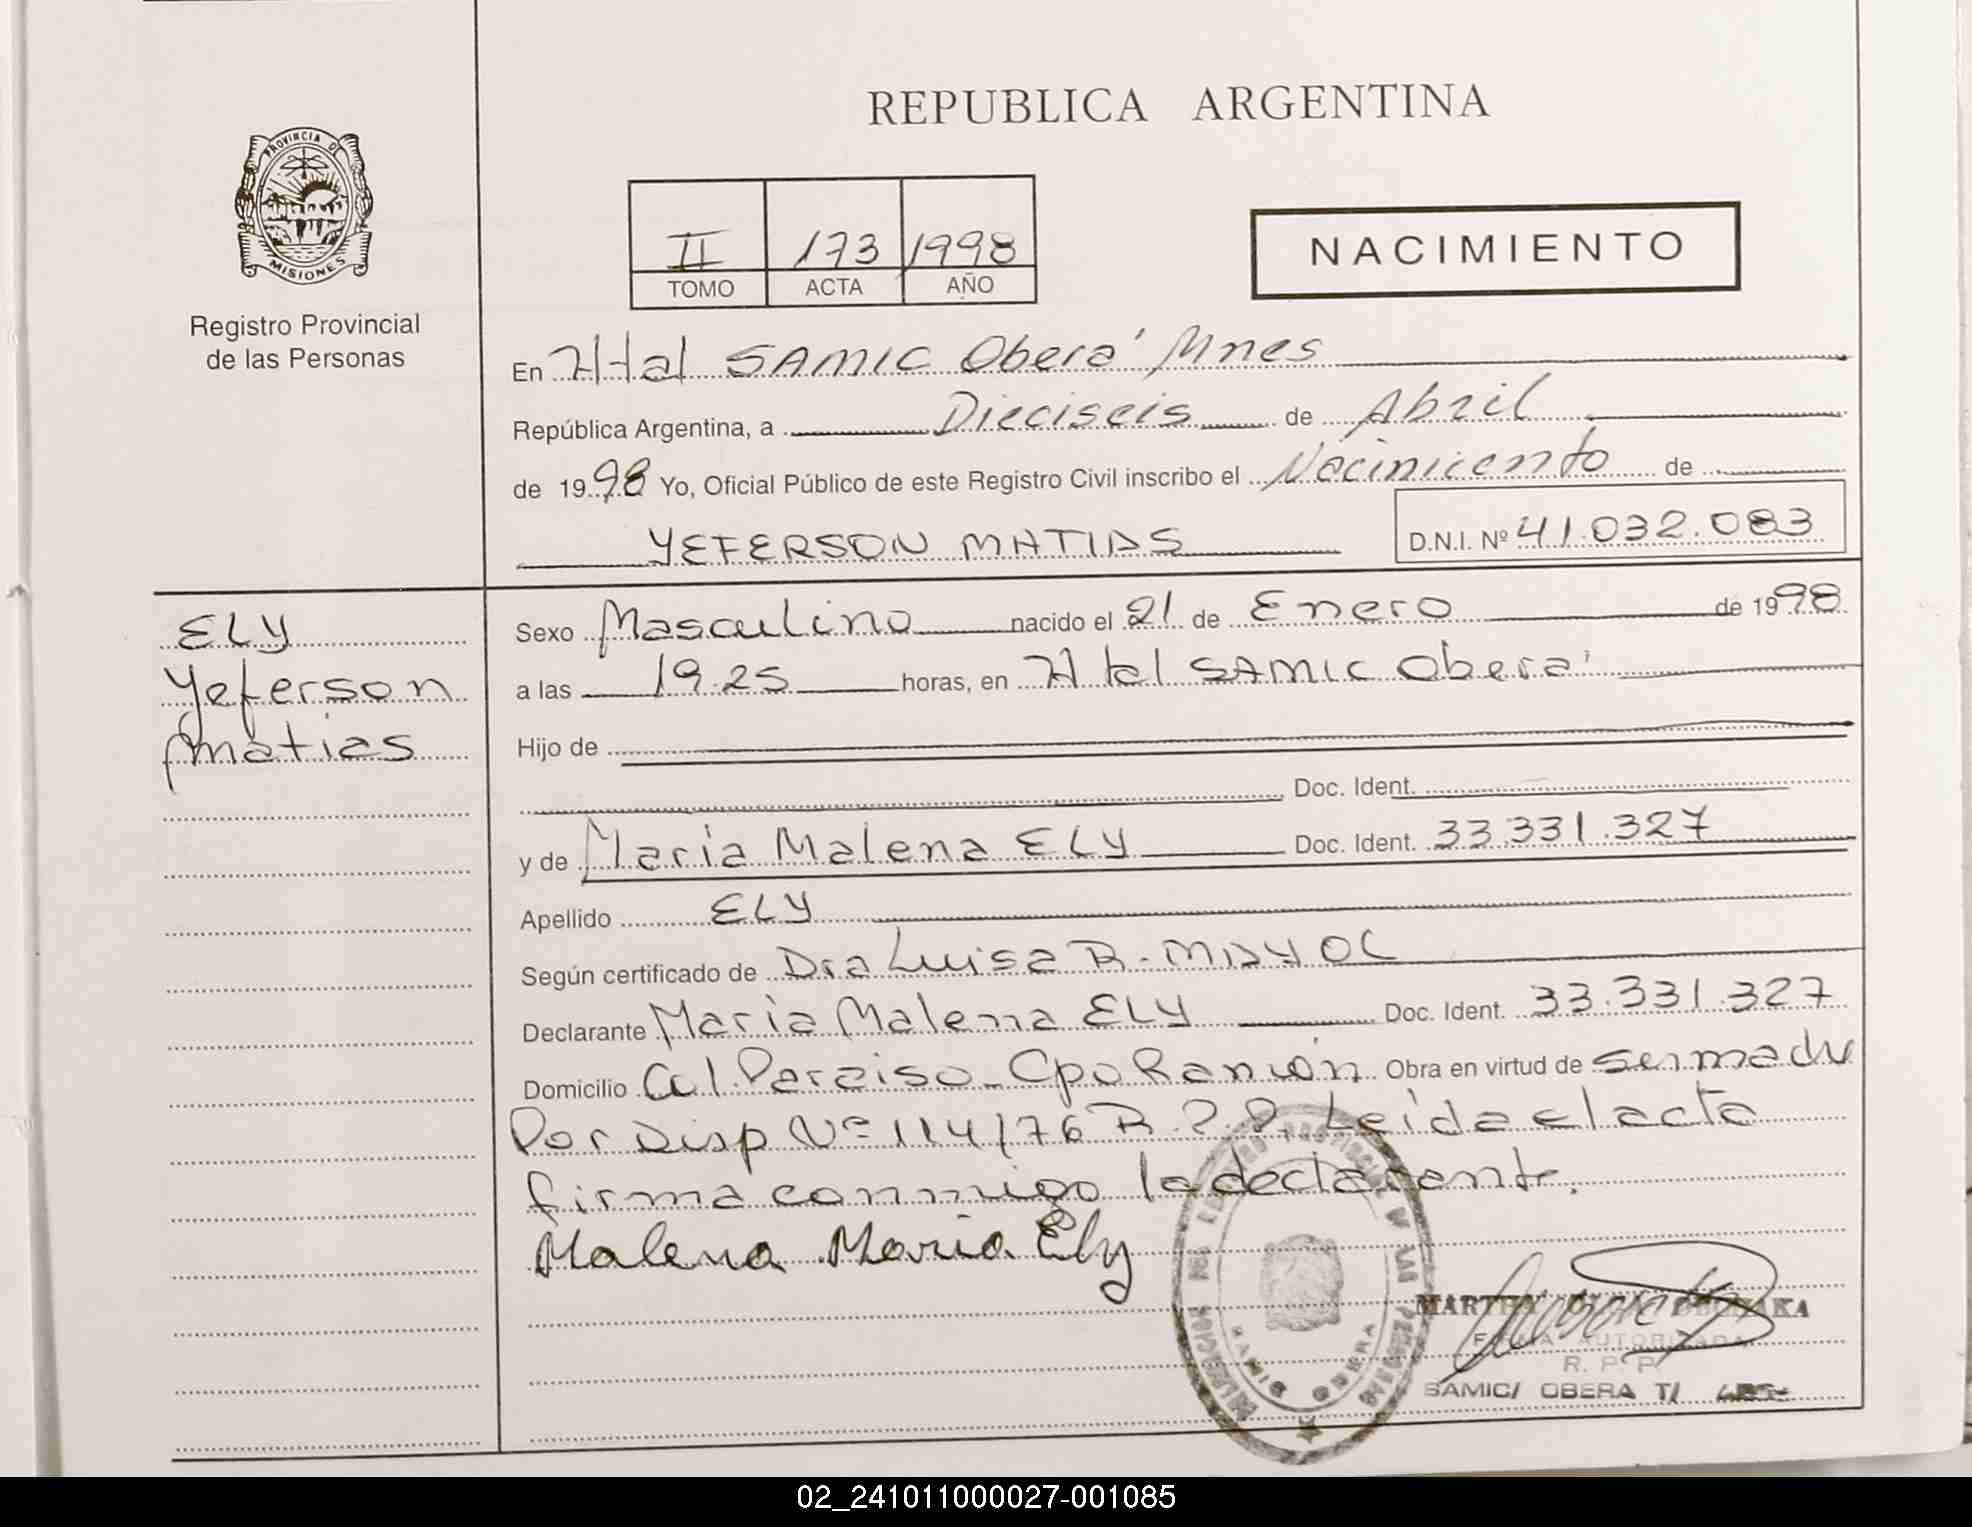 REPUBLICA ARGENTINA
PROVINCIA DE
MISIONES
Registro Provincial
de las Personas
II 173 1998
TOMO ACTA AÑO
NACIMIENTO
En Htal SAMIC Oberá Mnes
República Argentina, a Dieciseis de Abril
de 1998 Yo, Oficial Público de este Registro Civil inscribo el Nacimiento de
YEFERSON MATIAS D.N.I. Nº 41.032.083
ELY
Yeferson
Matias
Sexo Masculino nacido el 21 de Enero de 1998
a las 19.25 horas, en Htal SAMIC Oberá
Hijo de
Doc. Ident.
y de Maria Malena ELY Doc. Ident. 33.331.327
Apellido ELY
Según certificado de Dra Luisa R. MAYOL
Declarante Maria Malena ELY Doc. Ident. 33.331.327
Domicilio Col. Paraiso - Cpo Ramón Obra en virtud de ser madre
Por Disp Nº 114/76 R.P.P. Leida el acta
firma conmigo la declarante.
Malena Maria Ely
MARTHA
FIRMA AUTORIZADA
R. P. P.
SAMIC/ OBERA T/
SAMIC OBERA
02_241011000027-001085